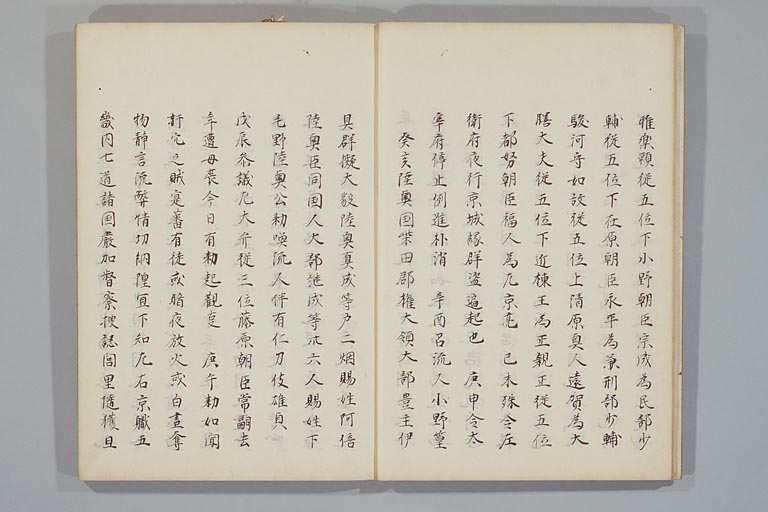 雅楽頭従五位下小野朝臣宗成為民部少
輔従五位下在原朝臣永平為兼刑部少輔
駿河守如故従五位上清原真人遠賀為大
膳大夫従五位下近棟王為正親正従五位
下都努朝臣福人為左京亮 己未殊令左
衛府夜行京城縁群盗遍起也 庚申令太
宰府停止例進朴消 辛酉召流人小野篁
癸亥陸奥国柴田郡権大領大部豊主伊
具郡擬大毅陸奥真成等戸二烟賜姓阿倍
陸奥臣同国人大部継成等卅六人賜姓下
毛野陸奥公勅喚流人伴有仁刀伎雄貞
戊辰参議左大弁従三位藤原朝臣常嗣去
年遭母喪今日有勅起観更 庚午勅如聞
奸宄之賊寔蕃有徒或暗夜放火或白昼奪
物静言流弊情切納隍宜下知左右京職五
畿内七道諸国厳加督察捜認閭里随獲且